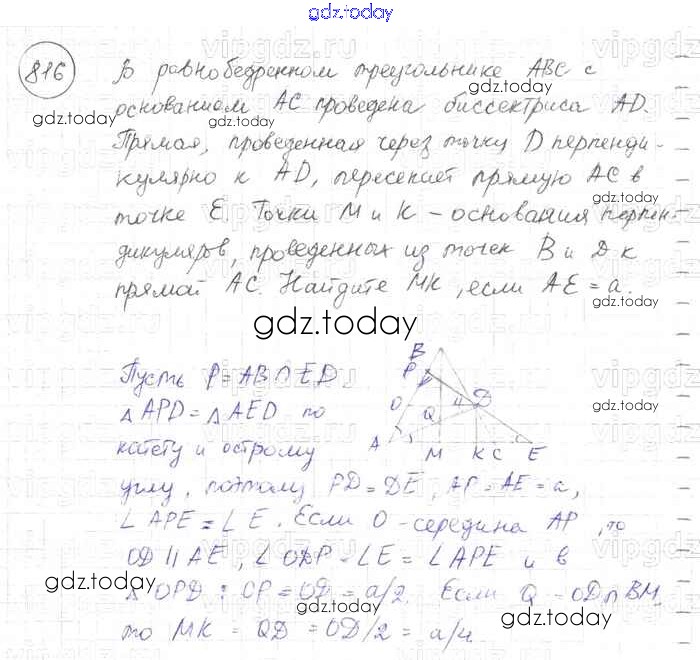 gdz.today
816 В равнобедренном треугольнике ABC с
основанием AC проведена биссектриса AD.
Прямая, проведенная через точку D перпенди-
кулярно к AD, пересекает прямую AC в
точке E. Точки M и K - основания перпен-
дикуляров, проведенных из точек B и D к
прямой AC. Найдите MK, если AE = a.
gdz.today
Пусть P = AB ∩ ED.
△ APD = △ AED по
катету и острому
углу, поэтому PD = DE, AP = AE = a,
∠ APE = ∠ E. Если O - середина AP, то
OD || AE, ∠ ODP = ∠E = ∠APE и в
△ OPD : OP = OD = a/2. Если Q = OD ∩ BM,
то MK = QD = OD/2 = a/4.
B
P
O
Q
D
A
M
K
C
E
gdz.today
gdz.today
gdz.today
gdz.today
gdz.today
gdz.today
gdz.today
gdz.today
gdz.today
vipgdz.ru